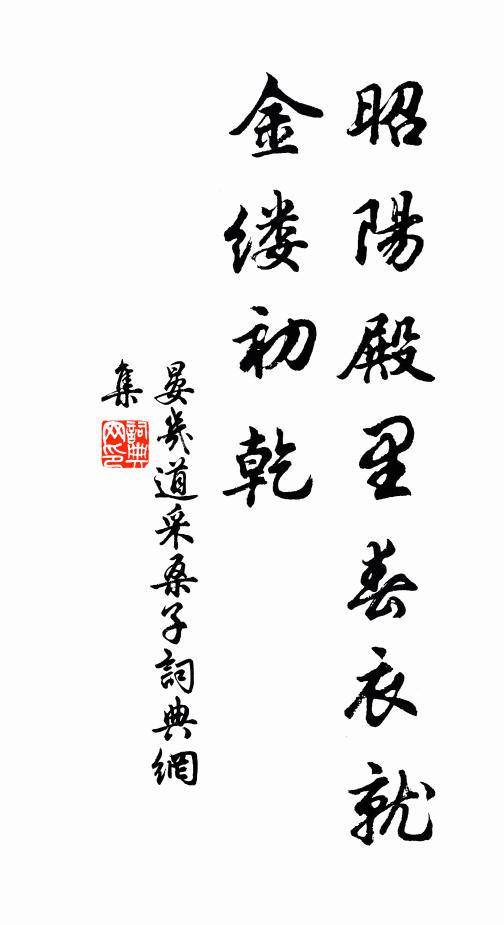 昭陽殿里春衣就
金缕初乾
晏幾道采桑子詞典網
集
詞典网印